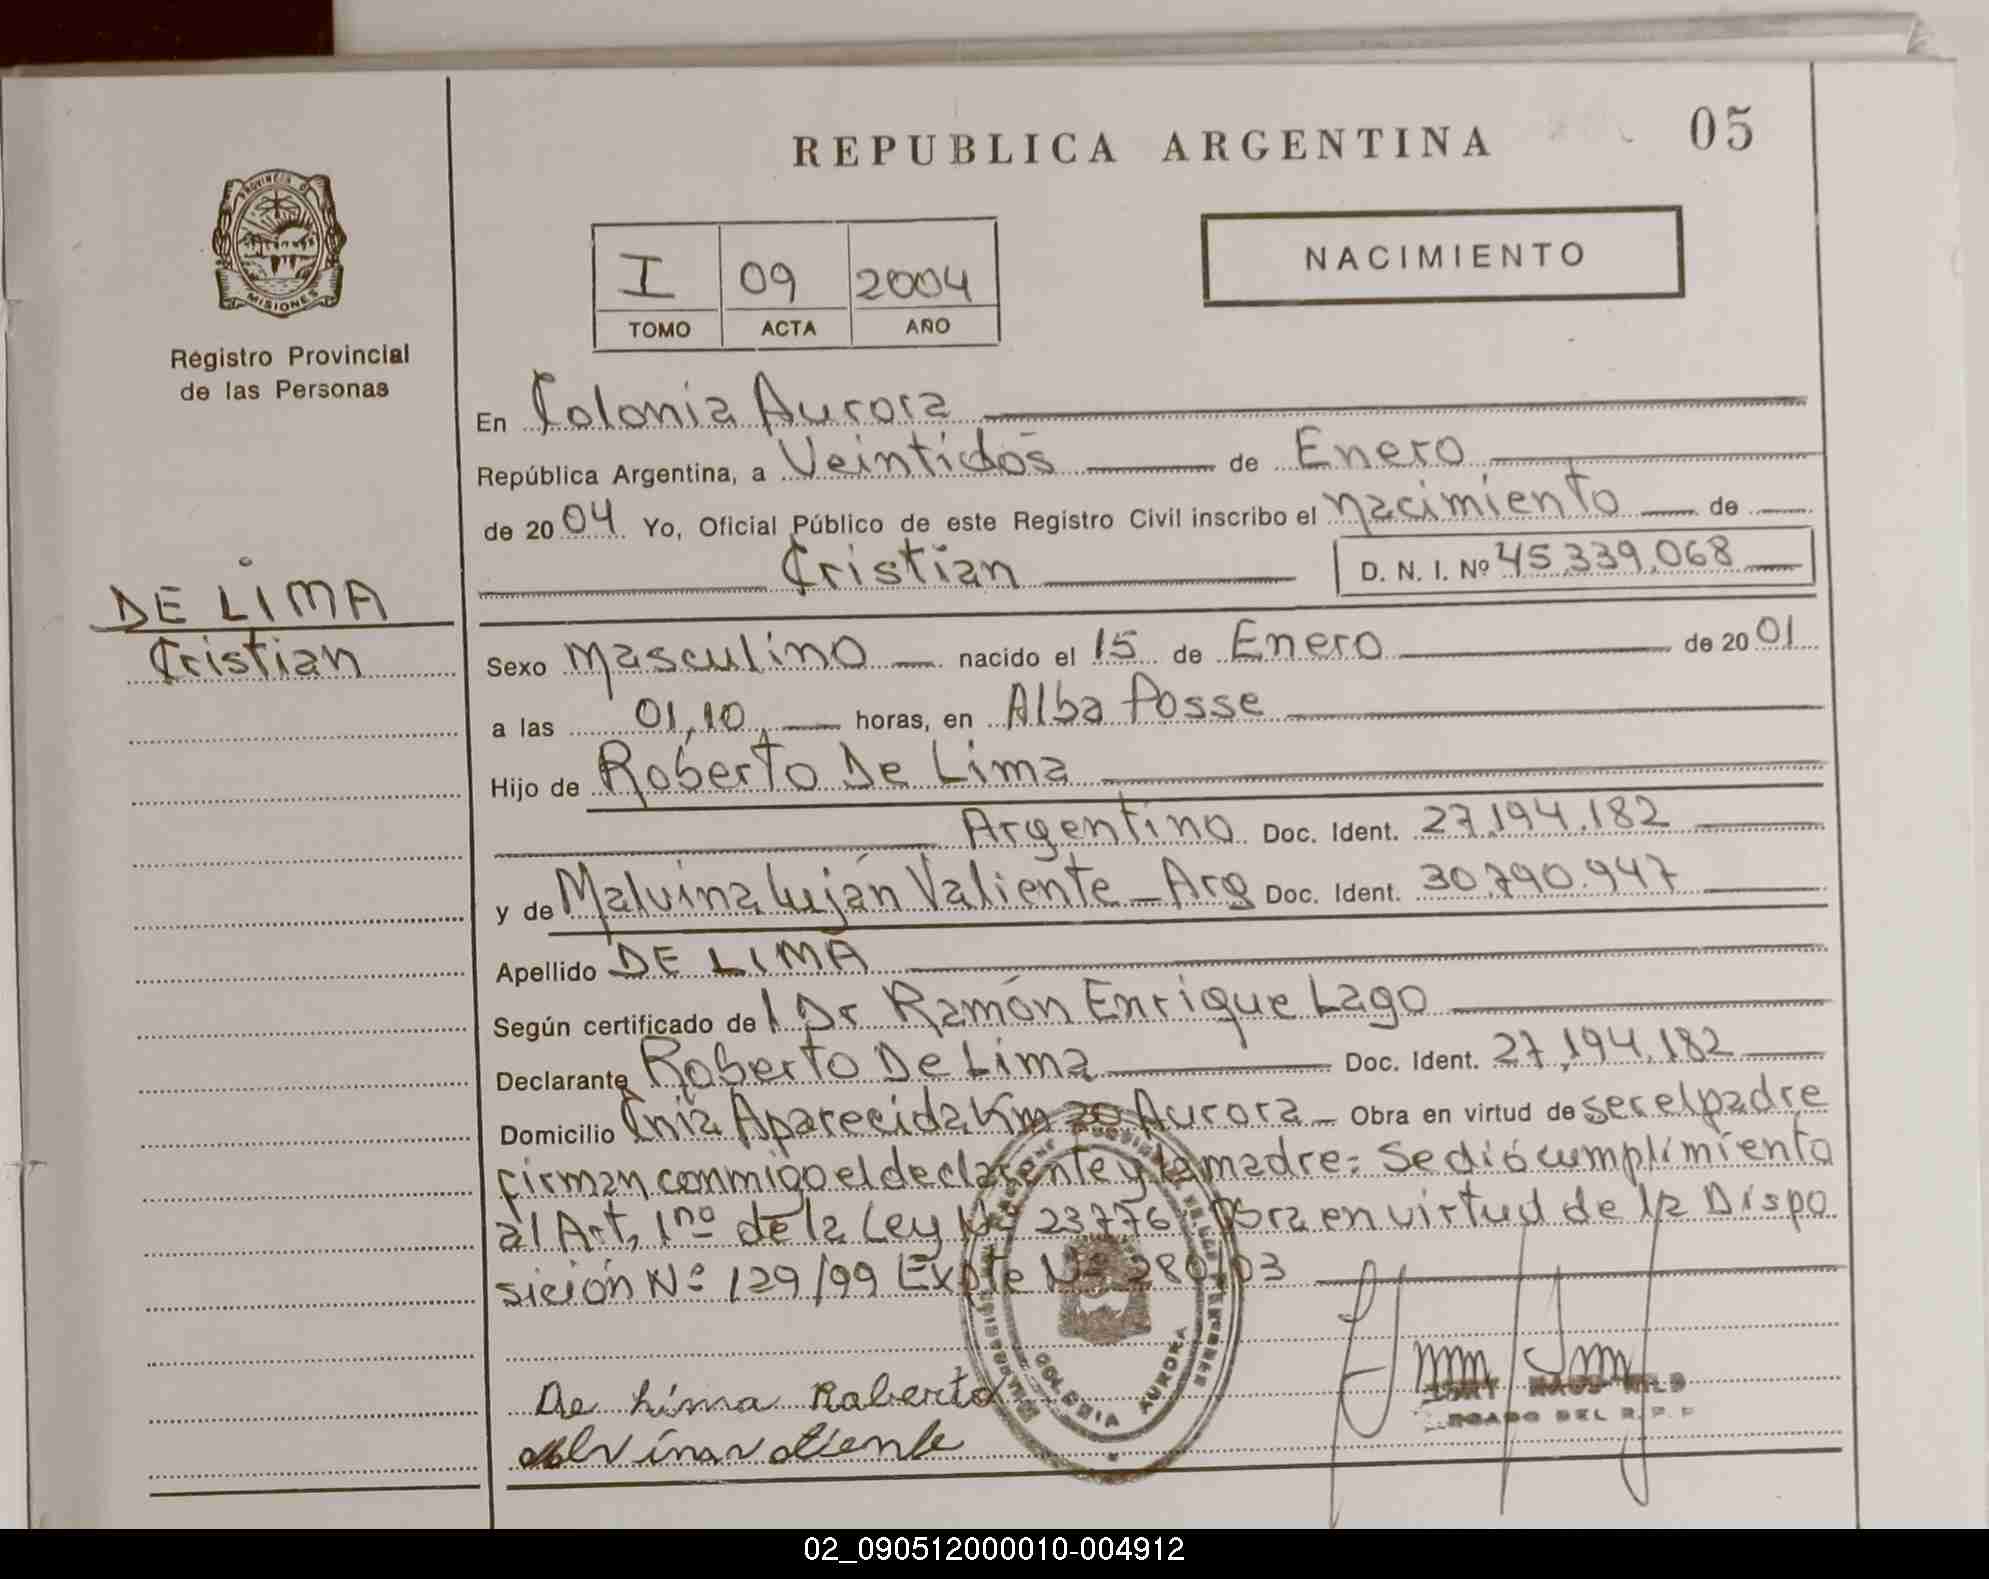 REPUBLICA ARGENTINA
05
PROVINCIA D
MISIONES
Registro Provincial
de las Personas
I 09 2004
TOMO ACTA AÑO
NACIMIENTO
DE LIMA
Cristian
En Colonia Aurora
República Argentina, a Veintidós de Enero
de 2004 Yo, Oficial Público de este Registro Civil inscribo el nacimiento de
Cristian D. N. I. Nº 45,339,068
Sexo Masculino nacido el 15 de Enero de 2001
a las 01,10 horas, en Alba Posse
Hijo de Roberto De Lima
Argentino Doc. Ident. 27.194.182
y de Malvina Luján Valiente - Arg Doc. Ident. 30.790.947
Apellido DE LIMA
Según certificado del Dr Ramón Enrique Lago
Declarante Roberto De Lima Doc. Ident. 27,194,182
Domicilio Cnia Aparecida Km 20 Aurora - Obra en virtud de ser el padre
firman conmigo el declarente y la madre = Se dió cumplimiento
al Art, 1no de la Ley Nº 23776 Obra en virtud de la Dispo
sición Nº 129/99 Expte Nº 280/03
De Lima Roberto
COLONIA AURORA
DEL R.P.P
02_090512000010-004912